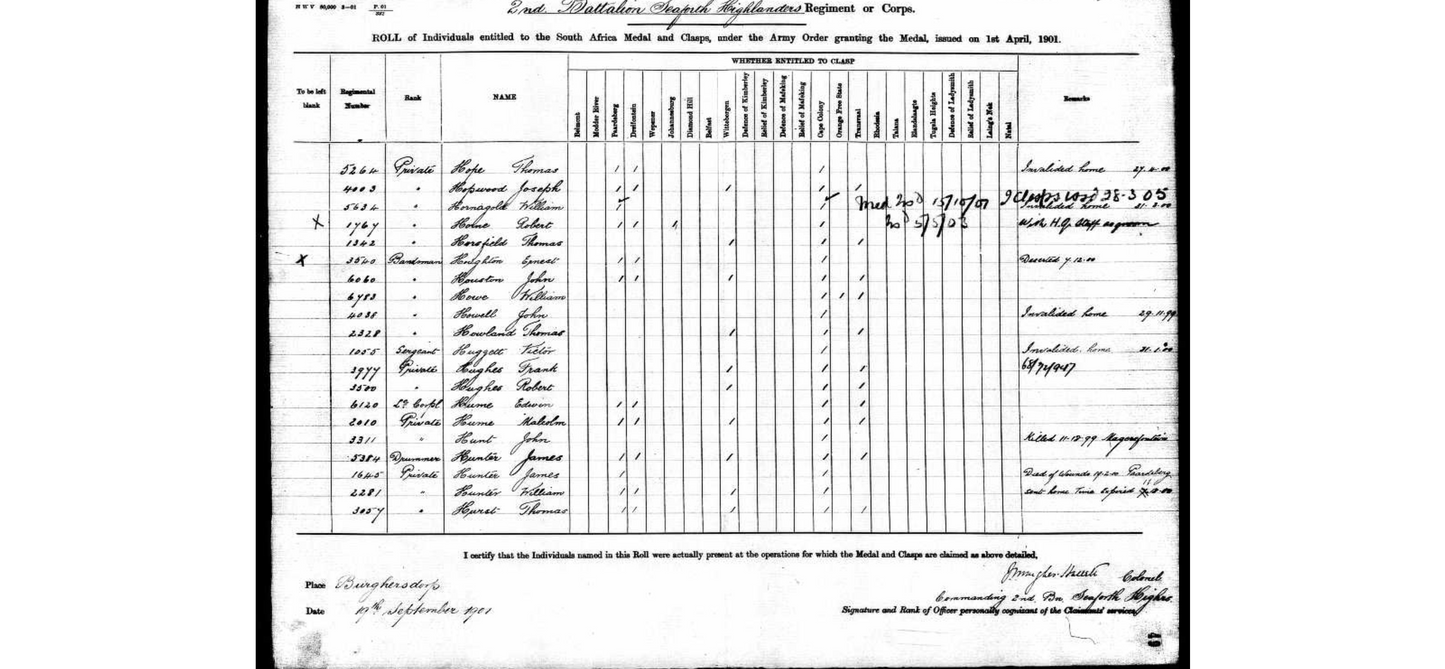 H W V 50,000 3-01 P. 01
2nd. Battalion Seaforth Highlanders Regiment or Corps.
ROLL of Individuals entitled to the South Africa Medal and Clasps, under the Army Order granting the Medal, issued on 1st April, 1901.
WHETHER ENTITLED TO CLASP
To be left blank Regimental Number Rank NAME Belmont Modder River Paardeberg Dreifontein Wepener Johannesburg Diamond Hill Belfast Wittebergen Defence of Kimberley Relief of Kimberley Defence of Mafeking Relief of Mafeking Cape Colony Orange Free State Transvaal Rhodesia Talana Elandslaagte Tugela Heights Defence of Ladysmith Relief of Ladysmith Laing's Nek Natal Remarks
5264 Private Hope Thomas / / / Invalided home 27.4.00
4003 " Hopwood Joseph / / / / /
5634 " Hornagold William ✓ ✓ 15/10/07 2 Clasps 28.3.05 Invalided home
X 1767 " Horne Robert / / / 5/5/03 With H.Q. Staff as groom
1342 " Horsfield Thomas / / /
X 3540 Bandsman Houghton Ernest / / / Deserted 7.12.00
6060 " Houston John / / / / /
6783 " Howe William / / /
4036 " Howell John / Invalided home 29.11.99
2328 " Howland Thomas / / /
1055 Sergeant Huggett Victor / Invalided home 31.1.00
3977 Private Hughes Frank / / / 68/
3500 " Hughes Robert / / /
6120 Lce Corpl Hume Edwin / / / /
2010 Private Hume Malcolm / / / / /
3311 " Hunt John / Killed 11.12.99 Magersfontein
5384 Drummer Hunter James / / / / /
1645 Private Hunter James / / Died of Wounds Paardeberg
2281 " Hunter William / / / / sent home Time expired
3057 " Hurst Thomas / / / / /
I certify that the Individuals named in this Roll were actually present at the operations for which the Medal and Clasps are claimed as above detailed,
Place Burghersdorp
Colonel
Commanding 2nd Bn Seaforth Highrs
Date 19th September 1901
Signature and Rank of Officer personally cognizant of the Claimants' services,